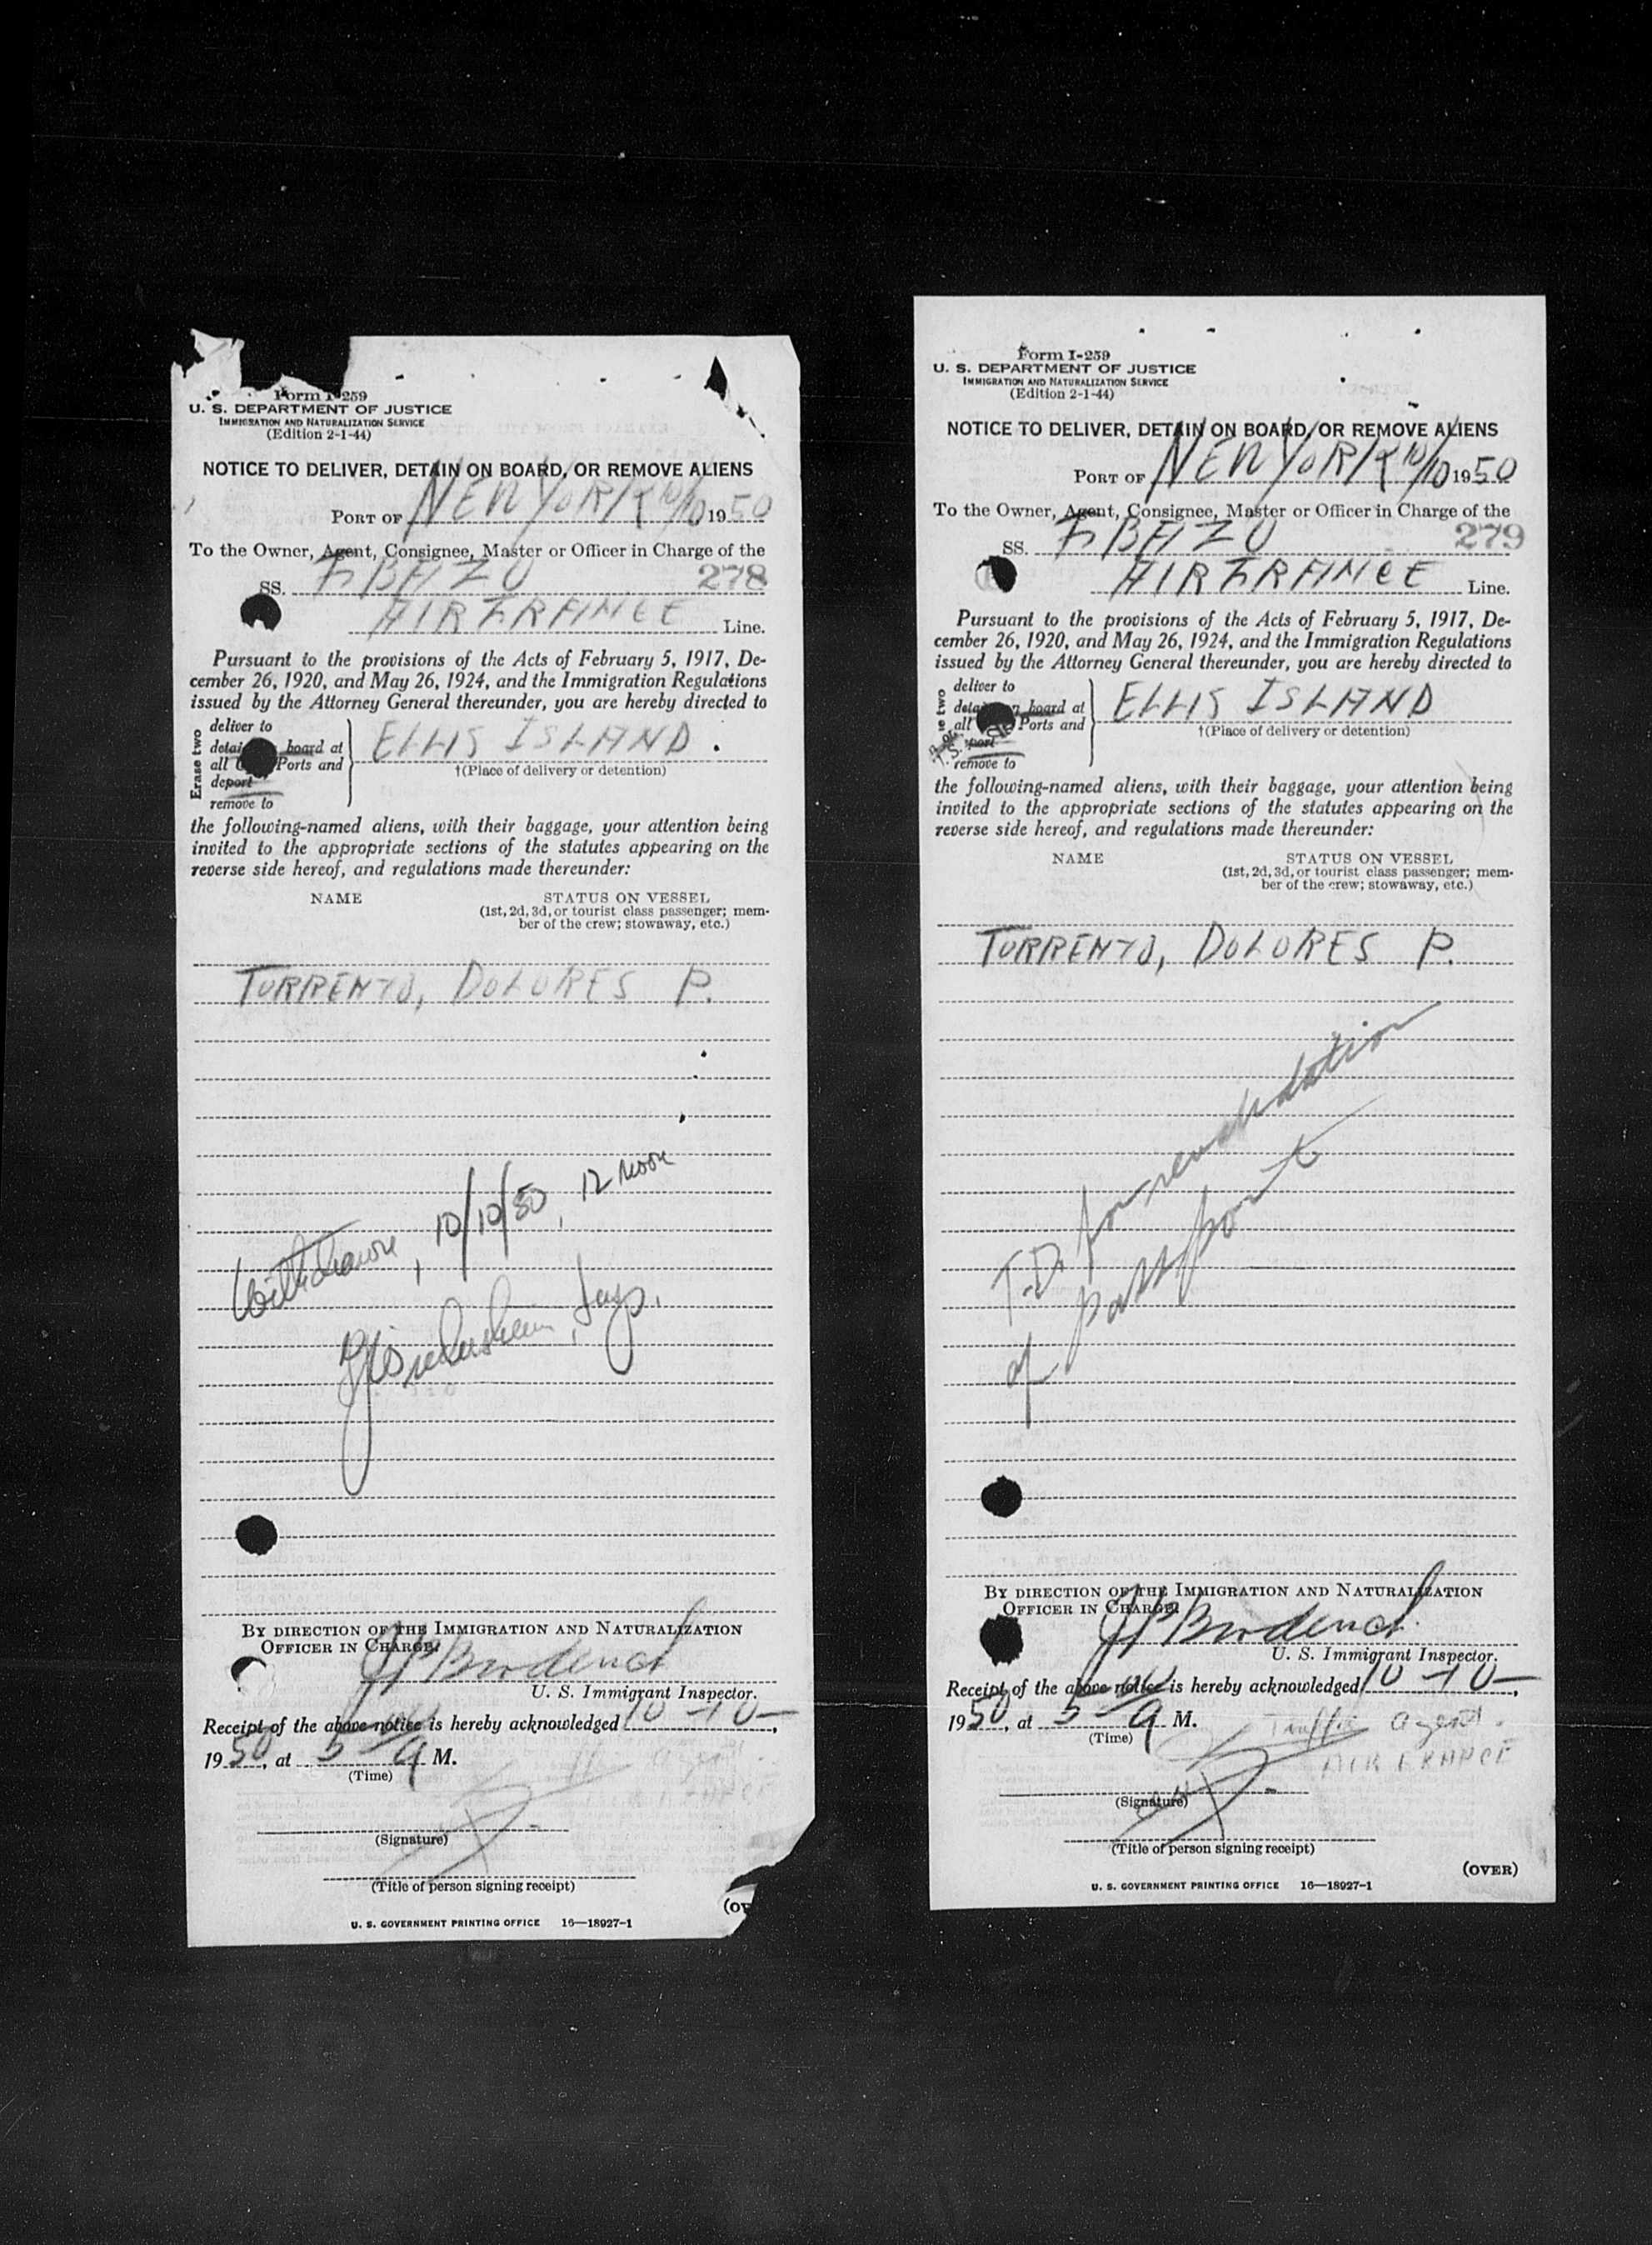 Form I-259
U. S. DEPARTMENT OF JUSTICE
IMMIGRATION AND NATURALIZATION SERVICE
(Edition 2-1-44)
NOTICE TO DELIVER, DETAIN ON BOARD, OR REMOVE ALIENS
PORT OF NEW YORK 10/10 1950
To the Owner, Agent, Consignee, Master or Officer in Charge of the
SS. FBAZO 278
AIR FRANCE Line.
Pursuant to the provisions of the Acts of February 5, 1917, De-
cember 26, 1920, and May 26, 1924, and the Immigration Regulations
issued by the Attorney General thereunder, you are hereby directed to
Erase two
deliver to
board at
all Ports and
deport
remove to
ELLIS ISLAND
†(Place of delivery or detention)
the following-named aliens, with their baggage, your attention being
invited to the appropriate sections of the statutes appearing on the
reverse side hereof, and regulations made thereunder:
NAME STATUS ON VESSEL
(1st, 2d, 3d, or tourist class passenger; mem-
ber of the crew; stowaway, etc.)
TORRENTO, DOLORES P.
Withdrawn, 10/10/50, 12 noon
BY DIRECTION OF THE IMMIGRATION AND NATURALIZATION
OFFICER IN CHARGE:
U. S. Immigrant Inspector.
Receipt of the above notice is hereby acknowledged 10-10-,
1950, at 5 A M.
(Time)
(Signature)
(Title of person signing receipt)
U. S. GOVERNMENT PRINTING OFFICE 16—18927-1
Form I-259
U. S. DEPARTMENT OF JUSTICE
IMMIGRATION AND NATURALIZATION SERVICE
(Edition 2-1-44)
NOTICE TO DELIVER, DETAIN ON BOARD, OR REMOVE ALIENS
PORT OF NEW YORK 10/10 1950
To the Owner, Agent, Consignee, Master or Officer in Charge of the
SS. FBAZO 279
AIR FRANCE Line.
Pursuant to the provisions of the Acts of February 5, 1917, De-
cember 26, 1920, and May 26, 1924, and the Immigration Regulations
issued by the Attorney General thereunder, you are hereby directed to
deliver to
board at
all Ports and
remove to
ELLIS ISLAND
†(Place of delivery or detention)
the following-named aliens, with their baggage, your attention being
invited to the appropriate sections of the statutes appearing on the
reverse side hereof, and regulations made thereunder:
NAME STATUS ON VESSEL
(1st, 2d, 3d, or tourist class passenger; mem-
ber of the crew; stowaway, etc.)
TORRENTO, DOLORES P.
T.D. for revalidation
of passport
BY DIRECTION OF THE IMMIGRATION AND NATURALIZATION
OFFICER IN CHARGE:
U. S. Immigrant Inspector.
Receipt of the above notice is hereby acknowledged 10-10-,
1950, at 5 A M. Traffic agent.
(Time) AIR FRANCE
(Signature)
(Title of person signing receipt)
(OVER)
U. S. GOVERNMENT PRINTING OFFICE 16—18927-1